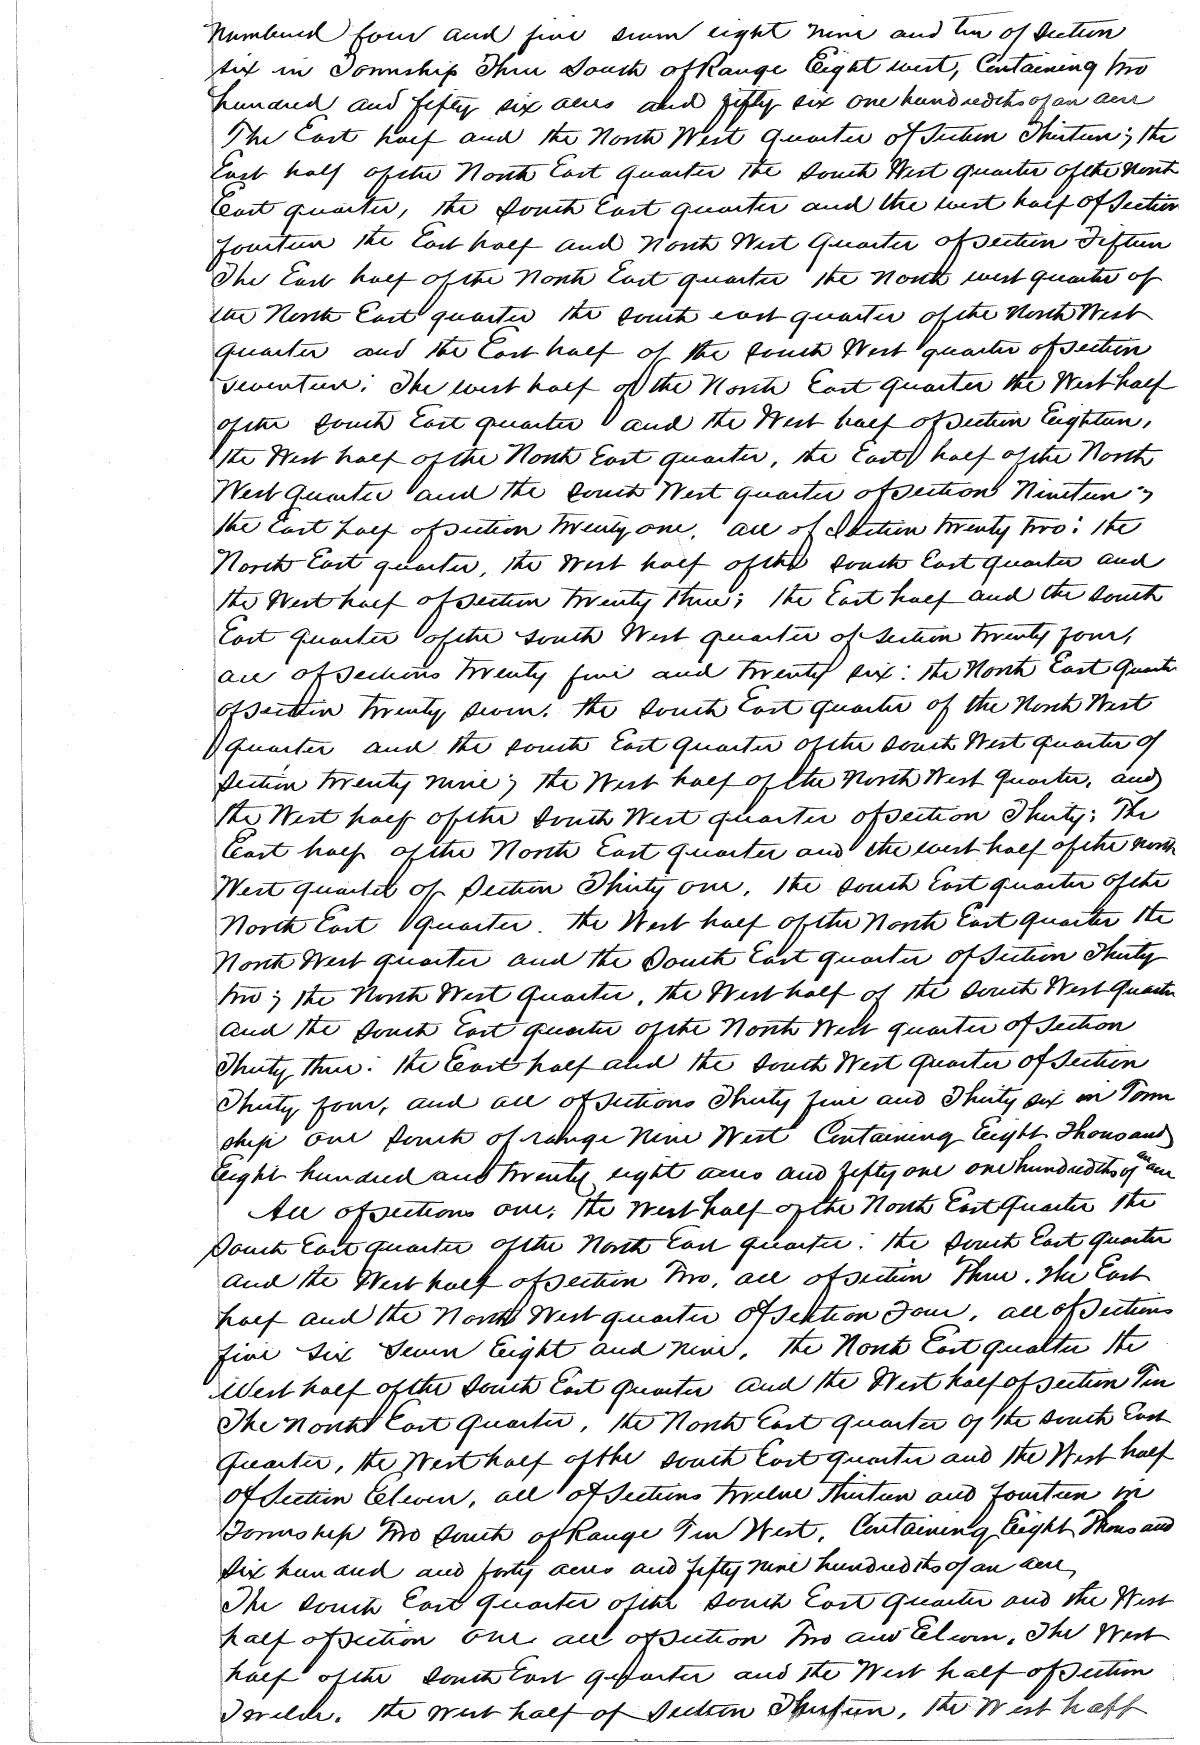 numbered four and five seven eight nine and ten of Section
six in Township Three South of Range Eight west, Containing two
hundred and fifty six acres and fifty six one hundredths of an acre
The East half and the North West quarter of Section Thirteen; the
East half of the North East quarter the South West quarter of the North
East quarter, the South East quarter and the west half of Section
fourteen the East half and North West Quarter of section Fifteen
The East half of the North East quarter the North west quarter of
the North East quarter the South east quarter of the North West
quarter and the East half of the South West quarter of section
seventeen; The west half of the North East quarter the West half
of the South East quarter and the West half of section Eighteen,
the West half of the North East quarter, the East half of the North
West Quarter and the South West quarter of section Nineteen;
the East half of section twenty one, all of Section twenty two: the
North East quarter, the West half of the South East quarter and
the West half of section twenty three; the East half and the South
East quarter of the South West quarter of section twenty four,
all of sections twenty five and twenty six: the North East quarter
of section twenty seven. the South East quarter of the North West
quarter and the South East quarter of the South West quarter of
Section twenty nine; the West half of the North West quarter, and
the West half of the South West quarter of section Thirty; The
East half of the North East quarter and the west half of the North
West quarter of Section Thirty one, the South East quarter of the
North East quarter. the West half of the North East quarter the
North West quarter and the South East quarter of Section Thirty
two; the North West quarter, the West half of the South West quarter
and the South East quarter of the North West quarter of Section
Thirty three: the East half and the South West quarter of Section
Thirty four, and all of Sections Thirty five and Thirty six in Town
ship one South of range Nine West Containing Eight Thousand
Eight hundred and twenty eight acres and fifty one one hundredths of an acre
All of sections one; the West half of the North East Quarter the
South East quarter of the North East quarter: the South East quarter
and the West half of section Two, all of section Three. The East
half and the North West quarter of section Four, all of Sections
five six seven Eight and nine, the North East quarter the
West half of the South East quarter and the West half of section Ten
The North East quarter, the North East quarter of the South East
quarter, the West half of the South East quarter and the West half
of Section Eleven, all of Sections twelve thirteen and fourteen in
Township Two South of Range Ten West, Containing Eight Thousand
Six hundred and forty acres and fifty nine hundredths of an acre,
The South East quarter of the South East quarter and the West
half of section One all of section Two and Eleven, The West
half of the South East quarter and the West half of Section
Twelve, the west half of Section Thirteen, the West half